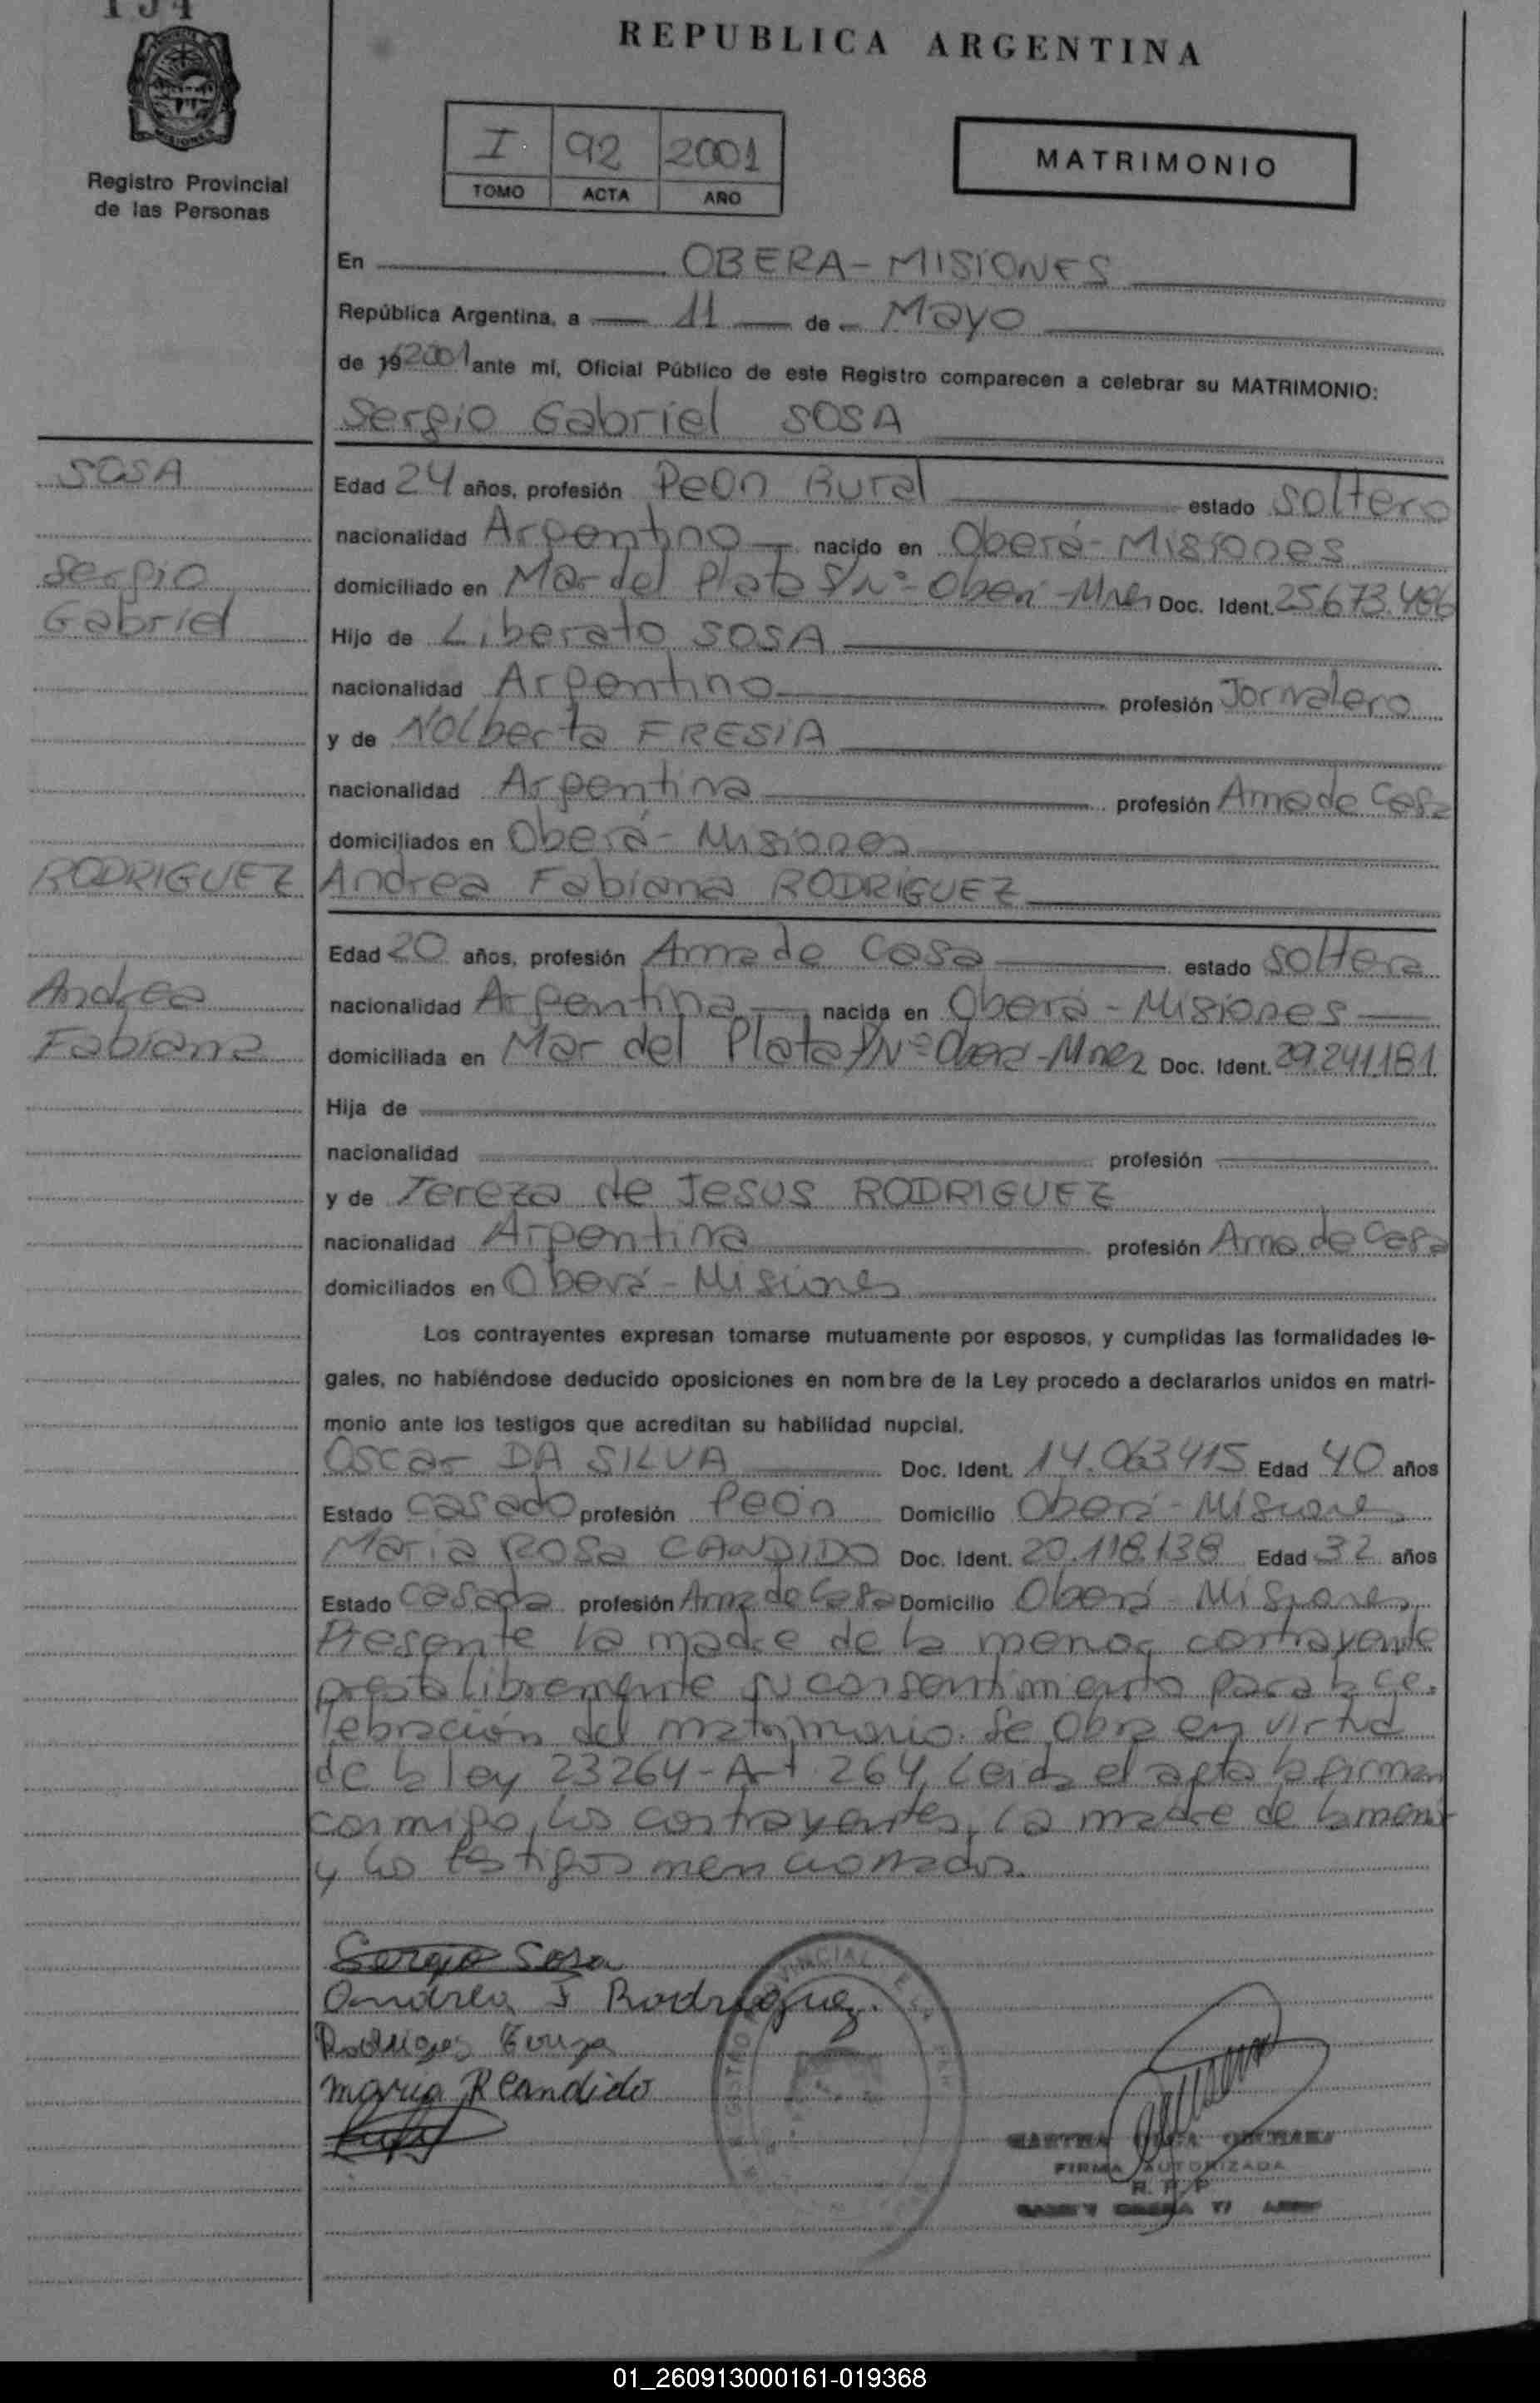 REPUBLICA ARGENTINA
MISIONES
Registro Provincial
de las Personas
I 92 2001
TOMO ACTA AÑO
MATRIMONIO
En OBERA - MISIONES
República Argentina, a 11 de Mayo
de 19 2001 ante mí, Oficial Público de este Registro comparecen a celebrar su MATRIMONIO:
Sergio Gabriel SOSA
SOSA
Edad 24 años, profesión Peon Rural estado soltero
nacionalidad Argentino nacido en Oberá - Misiones
Sergio
domiciliado en Mar del Plata S/Nº - Oberá - Mnes Doc. Ident. 25.673.486
Gabriel
Hijo de Liberato SOSA
nacionalidad Argentino profesión Jornalero
y de Nolberta FRESIA
nacionalidad Argentina profesión Ama de Casa
domiciliados en Oberá - Misiones
RODRIGUEZ Andrea Fabiana RODRIGUEZ
Edad 20 años, profesión Ama de Casa estado soltera
Andrea
nacionalidad Argentina nacida en Oberá - Misiones
Fabiana
domiciliada en Mar del Plata S/Nº Oberá - Mnes Doc. Ident. 29.241.181
Hija de
nacionalidad profesión
y de Tereza de Jesus RODRIGUEZ
nacionalidad Argentina profesión Ama de Casa
domiciliados en Oberá - Misiones
Los contrayentes expresan tomarse mutuamente por esposos, y cumplidas las formalidades le-
gales, no habiéndose deducido oposiciones en nombre de la Ley procedo a declararlos unidos en matri-
monio ante los testigos que acreditan su habilidad nupcial.
Oscar DA SILVA Doc. Ident. 14.063.415 Edad 40 años
Estado casado profesión Peón Domicilio Oberá - Misiones
Maria Rosa CANDIDO Doc. Ident. 20.118.138 Edad 32 años
Estado Casada profesión Ama de Casa Domicilio Oberá Misiones
Presente la madre de la menor contrayente
presta libremente su consentimiento para la ce-
lebración del matrimonio. Se Obra en virtud
de la ley 23264 - Art. 264, Leida el acta la firman
conmigo, los contrayentes, la madre de la menor
y los testigos mencionados.
Sergio Sosa
Andrea F Rodriguez.
Maria R Candido
FIRMA AUTORIZADA
R. P. P
01_260913000161-019368